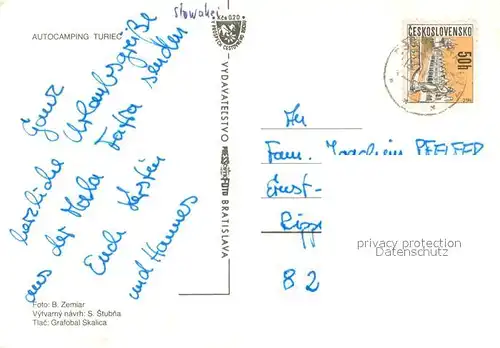 AUTOCAMPING TURIEC
slowakei
Kčs 0,20
ČESKOSLOVENSKO
50h
Ganz
herzliche Urlaubsgrüße
aus der Hohen Tatra senden
Eude Kerstin
und Hannes
VYDAVATEĽSTVO
PRESSFOTO
BRATISLAVA
An
Fam. Joachim PFEIFER
Ernst-
82
privacy protection
Datenschutz
Foto: B. Zemiar
Výtvarný návrh: S. Štubňa
Tlač: Grafobal Skalica